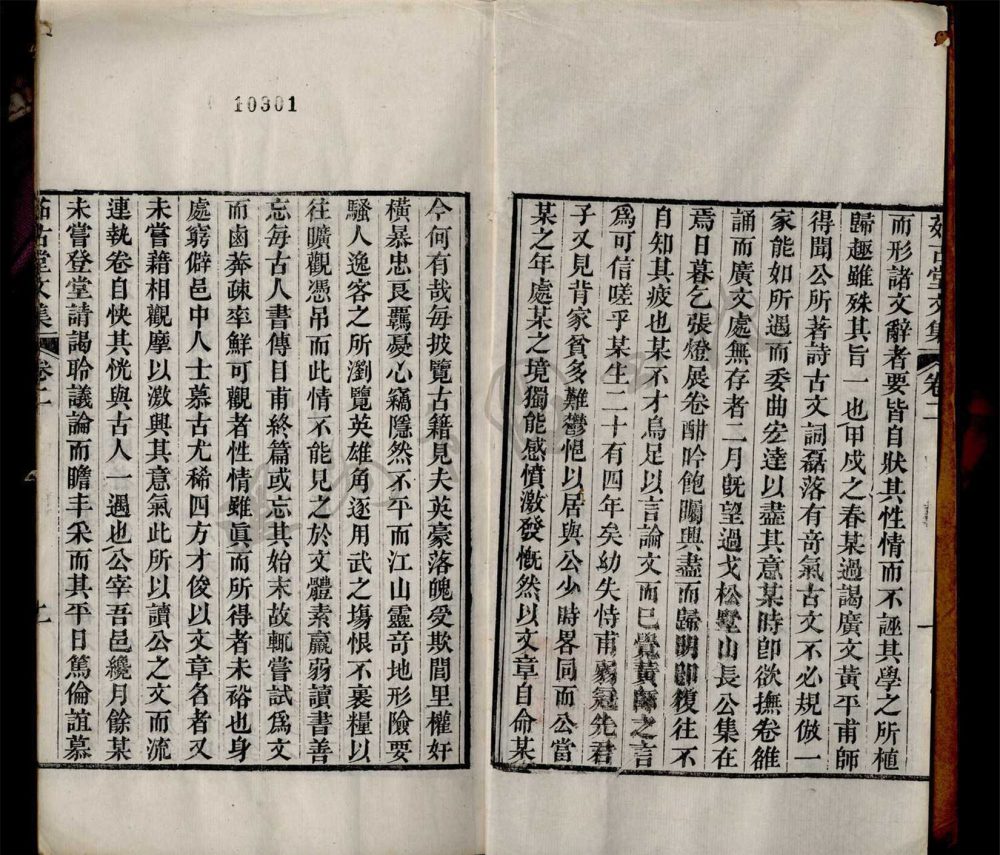 而形諸文辭者要皆自狀其性情而不誣其學之所植
歸趣雖殊其旨一也甲戍之春某過謁廣文黃平甫師
得聞公所著詩古文詞磊落有奇氣古文不必規倣一
家能如所遇而委曲宏達以盡其意某時卽欲撫卷雒
誦而廣文處無存者二月旣望過戈松墅山長公集在
焉日暮乞張燈展卷酣吟飽矚興盡而歸明卽復往不
自知其疲也某不才烏足以言論文而已覺黃師之言
爲可信嗟乎某生二十有四年矣幼失恃甫弱冠先君
子又見背家貧多難鬱悒以居與公少時畧同而公當
某之年處某之境獨能感憤激發慨然以文章自命某
今何有哉每披覽古籍見夫英豪落魄受欺閭里權奸
橫暴忠良羈憂心竊隱然不平而江山靈奇地形險要
騷人逸客之所瀏覽英雄角逐用武之塲恨不裹糧以
往曠觀憑吊而此情不能見之於文體素羸弱讀書善
忘每古人書傳目甫終篇或忘其始末故輒嘗試爲文
而鹵莽疎率鮮可觀者性情雖眞而所得者未裕也身
處窮僻邑中人士慕古尤稀四方才俊以文章名者又
未嘗藉相觀摩以激興其意氣此所以讀公之文而流
連執卷自快其恍與古人一遇也公宰吾邑纔月餘某
未嘗登堂請謁聆議論而瞻丰采而其平日篤倫誼慕
古堂文集 卷二
10301